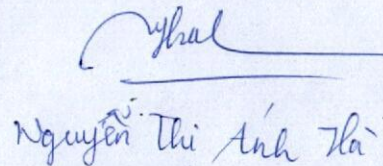 Nguyễn Thi Ánh Hà